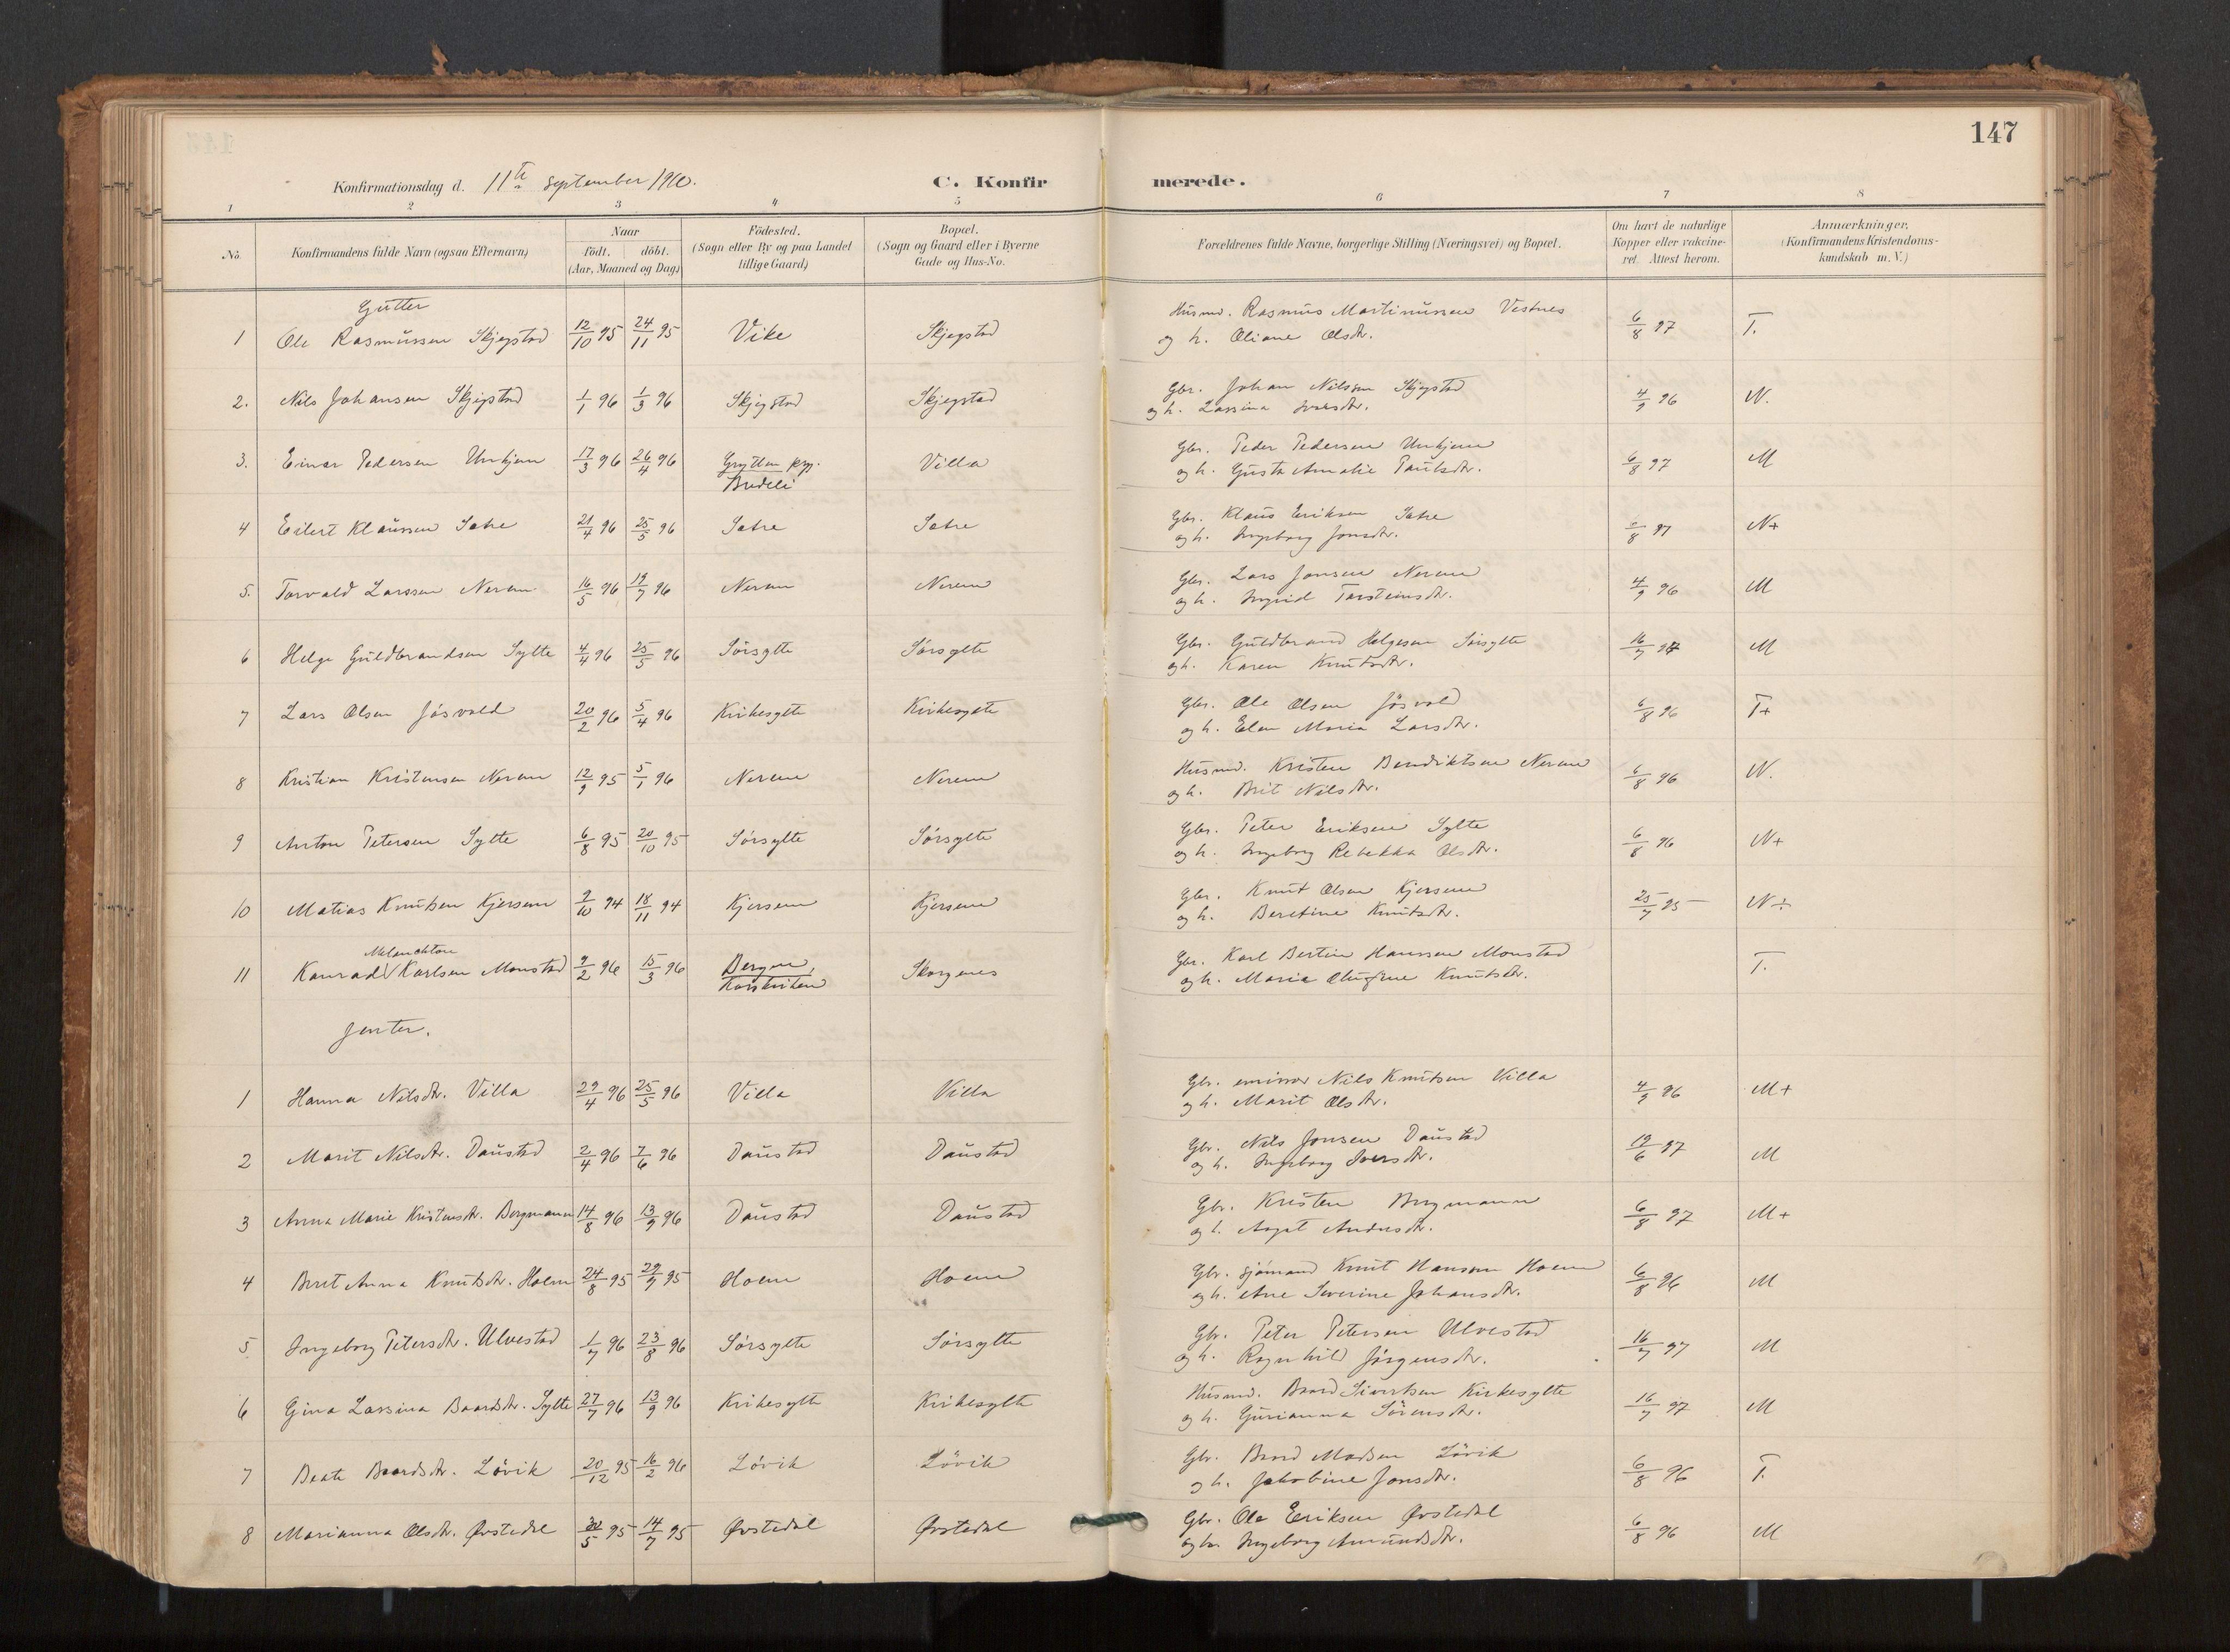 147
Konfirmationsdag d. 11te September 1910.
C. Konfirmerede.
1 2 3 4 5 6 7 8
No. Konfirmandens fulde Navn (ogsaa Efternavn) Naar født. døbt. (Aar, Maaned og Dag) Födested. (Sogn eller By og paa Landet tillige Gaard) Bopæl. (Sogn og Gaard eller i Byerne Gade og Hus-No. Forældrenes fulde Navne, borgerlige Stilling (Næringsvei) og Bopæl. Om havt de naturlige Kopper eller vakcineret. Attest herom. Anmærkninger. (Konfirmandens Kristendomskundskab m. V.)
Gutter
1 Ole Rasmussen Skjegstad 12/10 95 24/11 95 Vike Skjegstad Husmd. Rasmus Martinussen Vestnes 6/8 97 T.
og h. Oliane Olsdtr.
2. Nils Johansen Skjegstad 1/1 96 1/3 96 Skjegstad Skjegstad Gbr. Johan Nilssen Skjegstad 4/9 96 N.
og h. Lassina Iversdtr.
3. Einar Pedersen Unhjem 17/3 96 26/4 96 Grytten pgj. Villa Gbr. Peder Pedersen Unhjem 6/8 97 M
Bredeli og h. Gusta Amalie Paulsdtr.
4 Eilert Klaussen Satre 21/4 96 25/5 96 Satre Satre Gbr. Klaus Eriksen Satre 6/8 97 N+
og h. Ingeborg Jonsdtr.
5. Torvald Larssen Nerem 16/5 96 19/7 96 Nerem Nerem Gbr. Lars Jonsen Nerem 4/9 96 M
og h. Ingrid Torsteinsdtr.
6 Helge Guldbrandsen Sylte 4/4 96 25/5 96 Sörsylte Sörsylte Gbr. Guldbrand Helgesen Sörsylte 16/7 97 M
og h. Karen Knutsdtr.
7 Lars Olsen Jösvold 20/2 96 5/4 96 Kirkesylte Kirkesylte Gbr. Ole Olsen Jösvold 6/8 96 T+
og h. Elen Maria Larsdtr.
8 Kristian Kristensen Nerem 12/9 95 5/1 96 Nerem Nerem Husmd. Kristen Bendiktsen Nerem 6/8 96 N.
og h. Brit Nilsdtr.
9 Anton Petersen Sylte 6/8 95 20/10 95 Sörsylte Sörsylte Gbr. Peter Eriksen Sylte 6/8 96 N+
og h. Ingeborg Rebekka Olsdtr.
10 Matias Knutsen Kjersem 9/10 94 18/11 94 Kjersem Kjersem Gbr. Knut Olsen Kjersem 25/7 95 N÷
og h. Beretine Knutsdtr.
Melanchton
11 Konrad V Karlsen Monstad 9/2 96 15/3 96 Bergen, Skorgenes Gbr. Karl Bertin Hanssen Monstad T.
Korskirken og h. Maria Knutsdtr.
Jenter.
1 Hanna Nilsdtr. Villa 29/4 96 25/5 96 Villa Villa Gbr. emissær Nils Knutsen Villa 4/9 96 M+
og h. Marit Olsdtr.
2 Marit Nilsdtr. Daustad 2/4 96 7/6 96 Daustad Daustad Gbr. Nils Jonsen Daustad 19/6 97 M
og h. Ingeborg Iversdtr.
3 Anna Marie Kristensdtr. Bergmann 14/8 96 13/9 96 Daustad Daustad Gbr. Kristen Bergmann 6/8 97 M+
og h. Andersdtr.
4 Beret Anna Knutsdtr. Hoem 24/8 95 29/9 95 Hoem Hoem Gbr. sjömand Knut Hanssen Hoem 6/8 96 M
og h. Ane Severine Johansdtr.
5 Ingeborg Petersdtr. Ulvestad 1/7 96 23/8 96 Sörsylte Sörsylte Gbr. Peter Petersen Ulvestad 16/7 97 M
og h. Ragnhild Jörgensdtr.
6 Gina Lassina Baardsdtr. Sylte 27/7 96 13/9 96 Kirkesylte Kirkesylte Husmd. Baard Sivertsen Kirkesylte 16/7 97 M
og h. Gurianna Sörensdtr.
7 Beate Baardsdtr. Lövik 20/12 95 16/2 96 Lövik Lövik Gbr. Baard Madsen Lövik 6/8 96 T.
og h. Jakobine Jonsdtr.
8 Marianna Olsdtr. Øvstedal 30/5 95 14/7 95 Øvstedal Øvstedal Gbr. Ole Eriksen Øvstedal 6/8 96 M
og h. Ingeborg Amundsdtr.